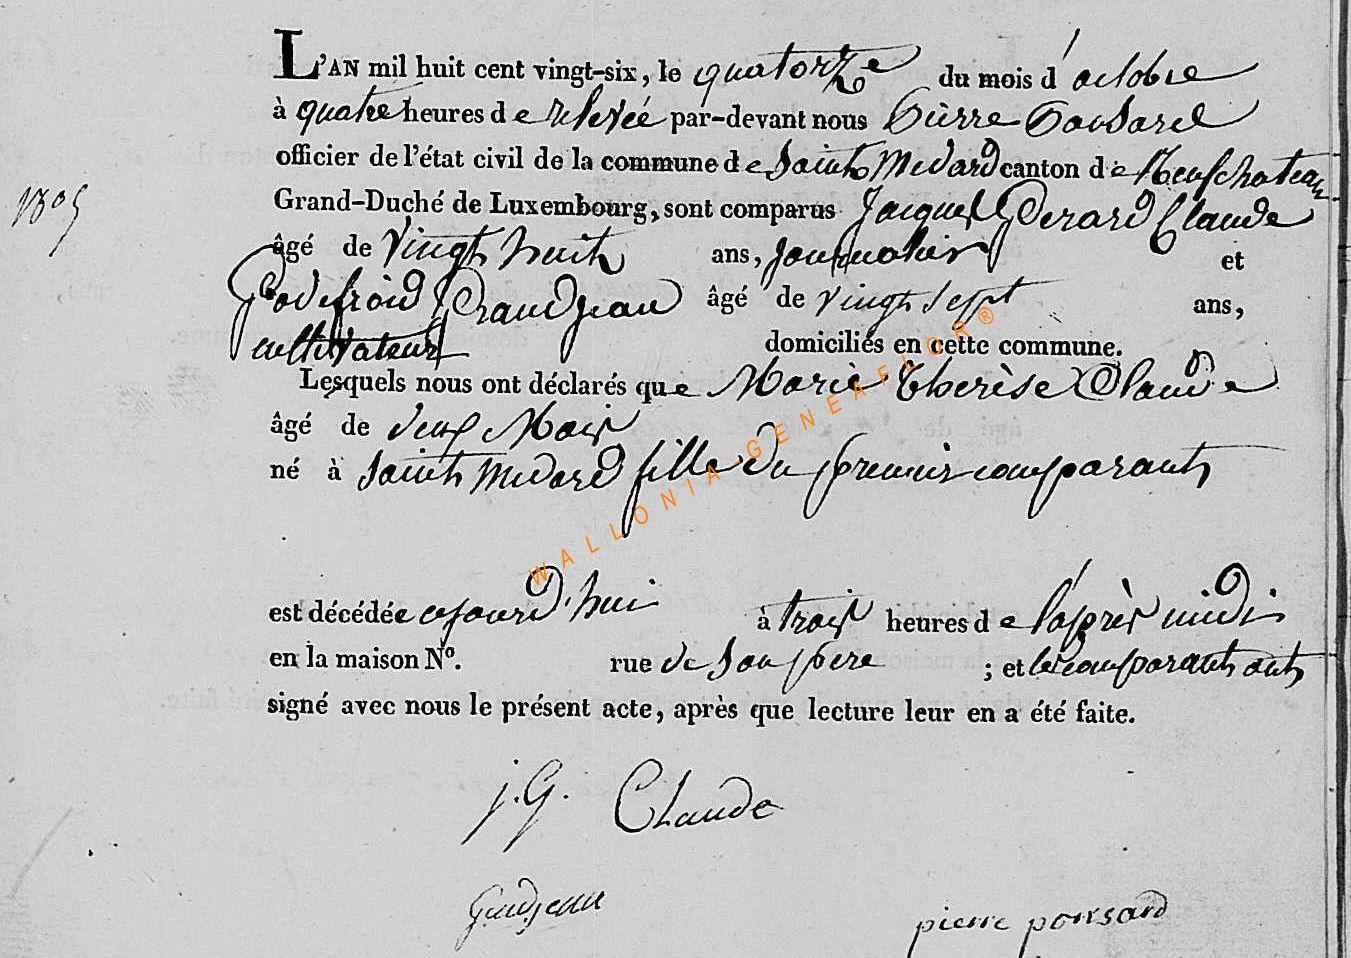 L'AN mil huit cent vingt-six, le quatorze du mois d'octobre
à quatre heures de relevée par-devant nous Pierre Ponsard
officier de l'état civil de la commune de Saint Medard canton de Neufchateau
Grand-Duché de Luxembourg, sont comparus Jacques Gerard Claude
1805
âgé de vingt huit ans, journalier et
Godefroid Grandjean âgé de vingt sept ans,
cultivateur domiciliés en cette commune.
Lesquels nous ont déclarés que Marie Therèse Claude
âgé de deux Mois
né à Saint Medard fille du premier comparant
est décédée cejourd'hui à trois heures de l'après midi
en la maison N°. rue de son pere ; et les comparants ont
signé avec nous le présent acte, après que lecture leur en a été faite.
j. G. Claude
Grandjean
pierre ponsard
WALLONIA-GENEAFLOR®